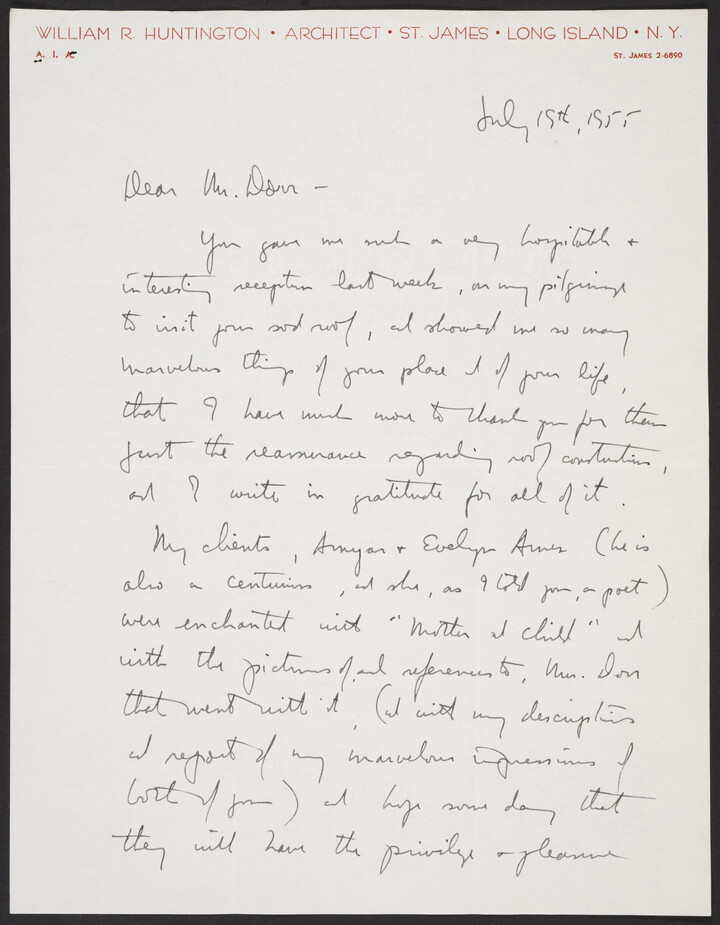 WILLIAM R. HUNTINGTON • ARCHITECT • ST. JAMES • LONG ISLAND • N. Y.
A. I. A. ST. JAMES 2-6890
July 19th, 1955
Dear Mr. Dorr –
You gave me such a very hospitable +
interesting reception last week, on my pilgrimage
to visit your sod roof, and showed me so many
marvelous things of your place and of your life,
that I have much more to thank you for than
just the reassurance regarding roof construction,
and I write in gratitude for all of it.
My clients, Amyas + Evelyn Ames (he is
also a centurion, and she, as I told you, a poet)
were enchanted with "Mother and Child" and
with the pictures of, and references to, Mrs. Dorr
that went with it, (and with my description
and report of my marvelous impressions of
both of you) and hope some day that
they will have the privilege + pleasure